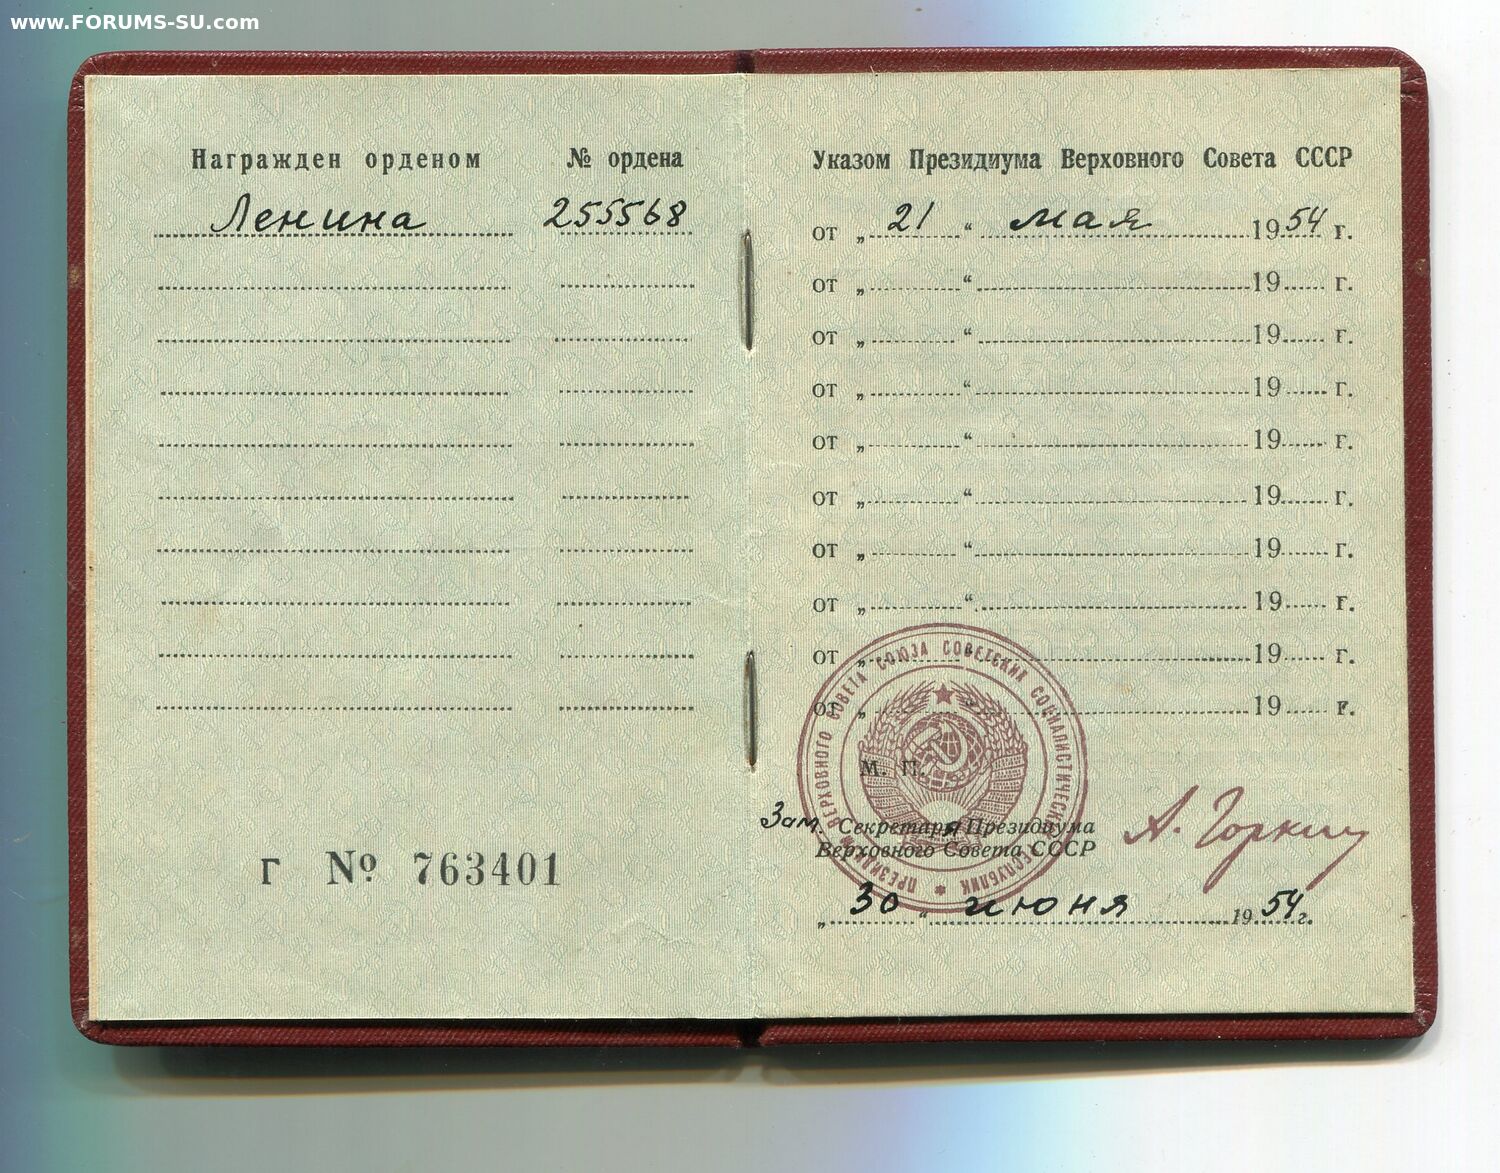 www.FORUMS-SU.com
Награжден орденом № ордена
Ленина 255568
Г № 763401
Указом Президиума Верховного Совета СССР
от „21“ мая 1954 г.
от „ “ 19 г.
от „ “ 19 г.
от „ “ 19 г.
от „ “ 19 г.
от „ “ 19 г.
от „ “ 19 г.
от „ “ 19 г.
от „ “ 19 г.
от „ “ 19 г.
ПРЕЗИДИУМ ВЕРХОВНОГО СОВЕТА СОЮЗА СОВЕТСКИХ СОЦИАЛИСТИЧЕСКИХ РЕСПУБЛИК
М. П.
Зам. Секретаря Президиума
Верховного Совета СССР
А. Горкин
„30“ июня 1954 г.